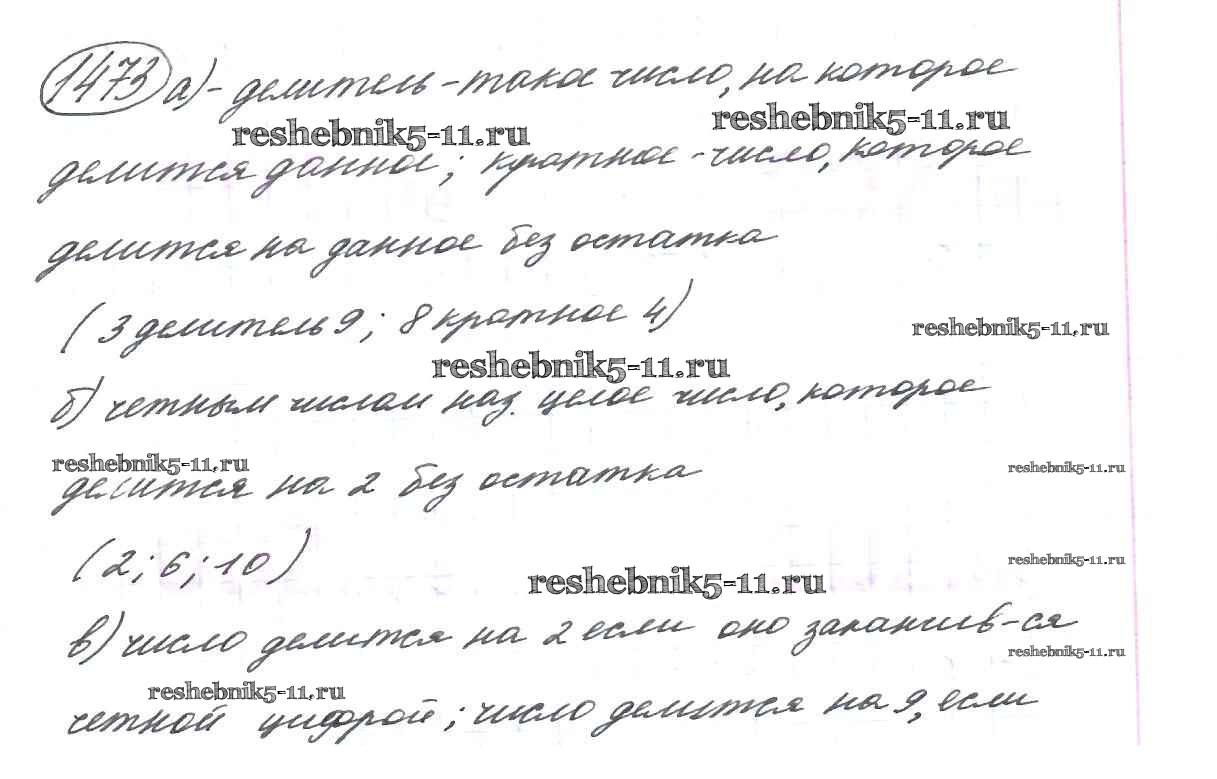 1473 а)- делитель - такое число, на которое
reshebnik5-11.ru reshebnik5-11.ru
делится данное; кратное - число, которое
делится на данное без остатка
(3 делитель 9; 8 кратное 4)
reshebnik5-11.ru
reshebnik5-11.ru
б) четным числом наз. целое число, которое
reshebnik5-11.ru reshebnik5-11.ru
делится на 2 без остатка
(2; 6; 10)
reshebnik5-11.ru
reshebnik5-11.ru
в) число делится на 2 если оно заканчив-ся
reshebnik5-11.ru
reshebnik5-11.ru
четной цифрой; число делится на 9, если